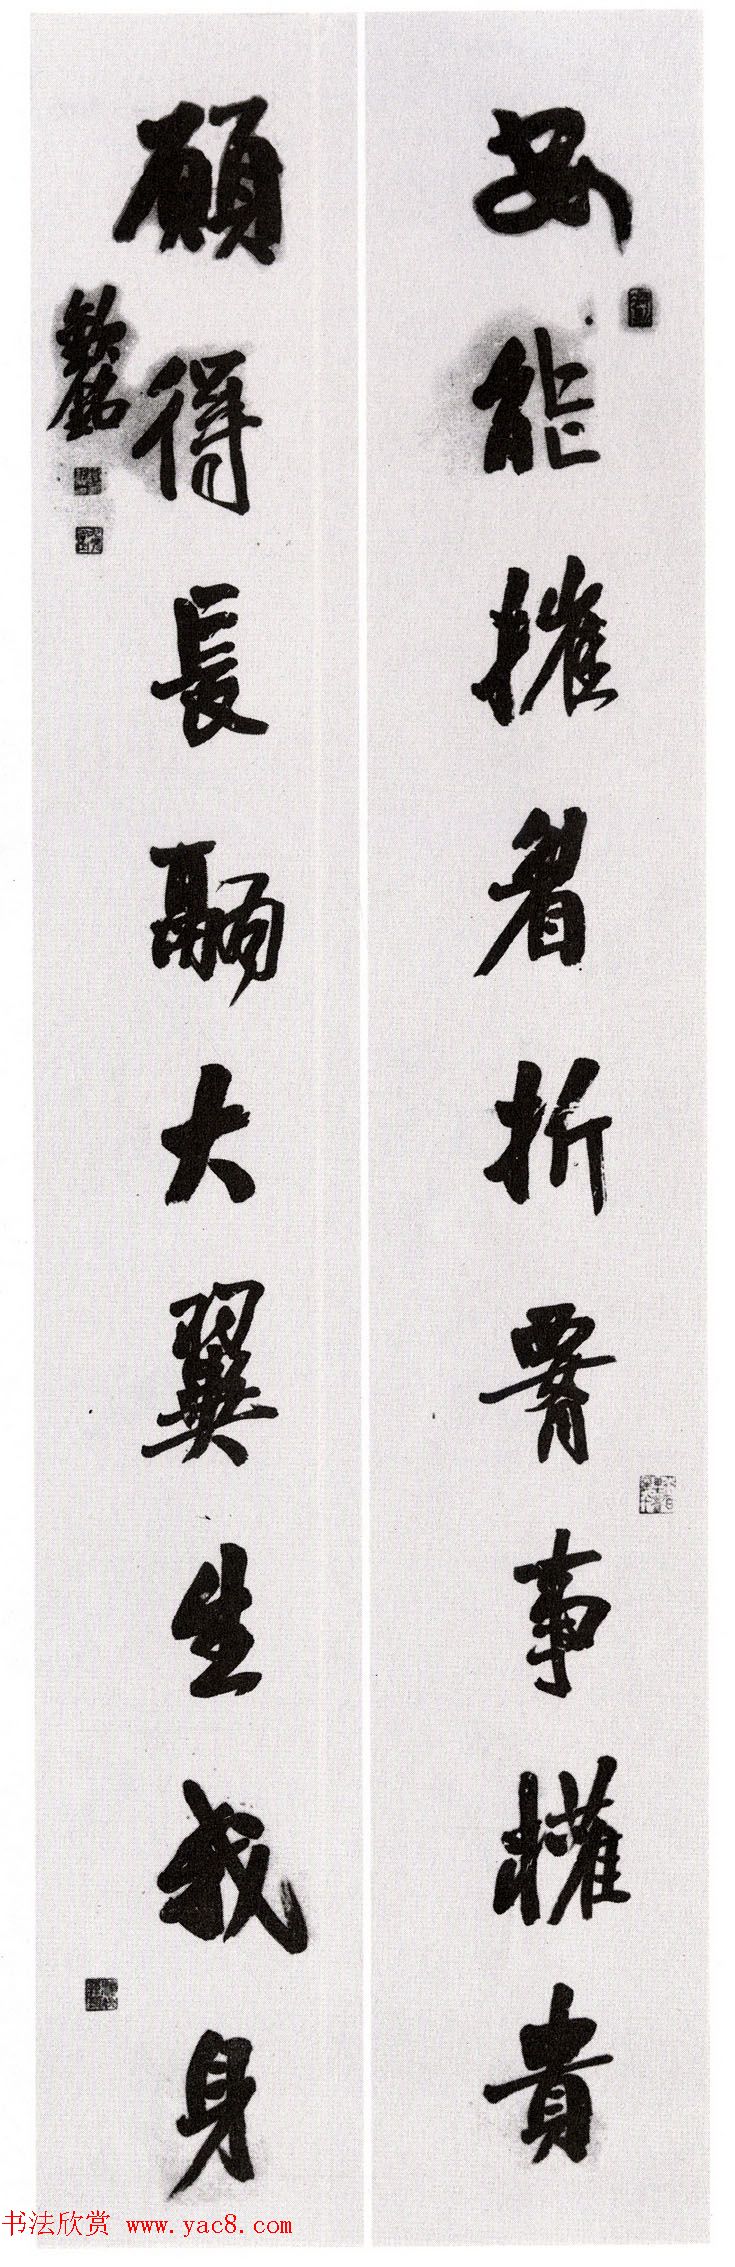 安能摧眉折腰事權貴
願得長翮大翼生我身
书法欣赏 www.yac8.com